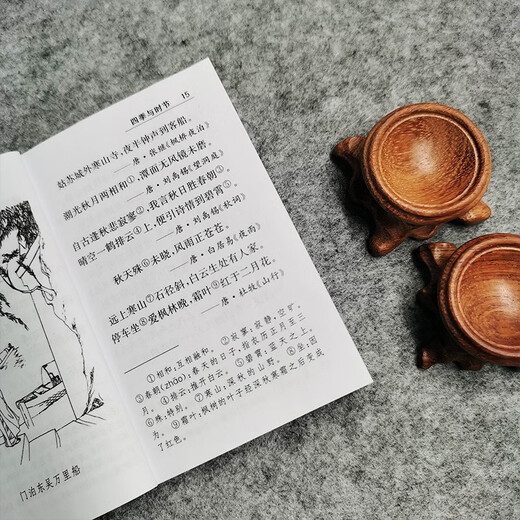 四季与时节 15
姑苏城外寒山寺,夜半钟声到客船。
——唐·张继《枫桥夜泊》
湖光秋月两相和①,潭面无风镜未磨。
——唐·刘禹锡《望洞庭》
自古逢秋悲寂寥②,我言秋日胜春朝③。
晴空一鹤排云④上,便引诗情到碧霄⑤。
——唐·刘禹锡《秋词》
秋天殊⑥未晓,风雨正苍苍。
——唐·白居易《夜雨》
远上寒山⑦石径斜,白云生处有人家。
停车坐⑧爱枫林晚,霜叶⑨红于二月花。
——唐·杜牧《山行》
①相和:互相融和。 ②寂寥:寂静,空旷。
③春朝(zhāo):春天的日子,指农历正月至三
月。 ④排云:推开白云。 ⑤碧霄:蓝天之上。
⑥殊:特别。 ⑦寒山:深秋的山野。 ⑧坐:因
为。 ⑨霜叶:枫树的叶子经深秋寒霜之后变成
了红色。
门泊东吴万里船